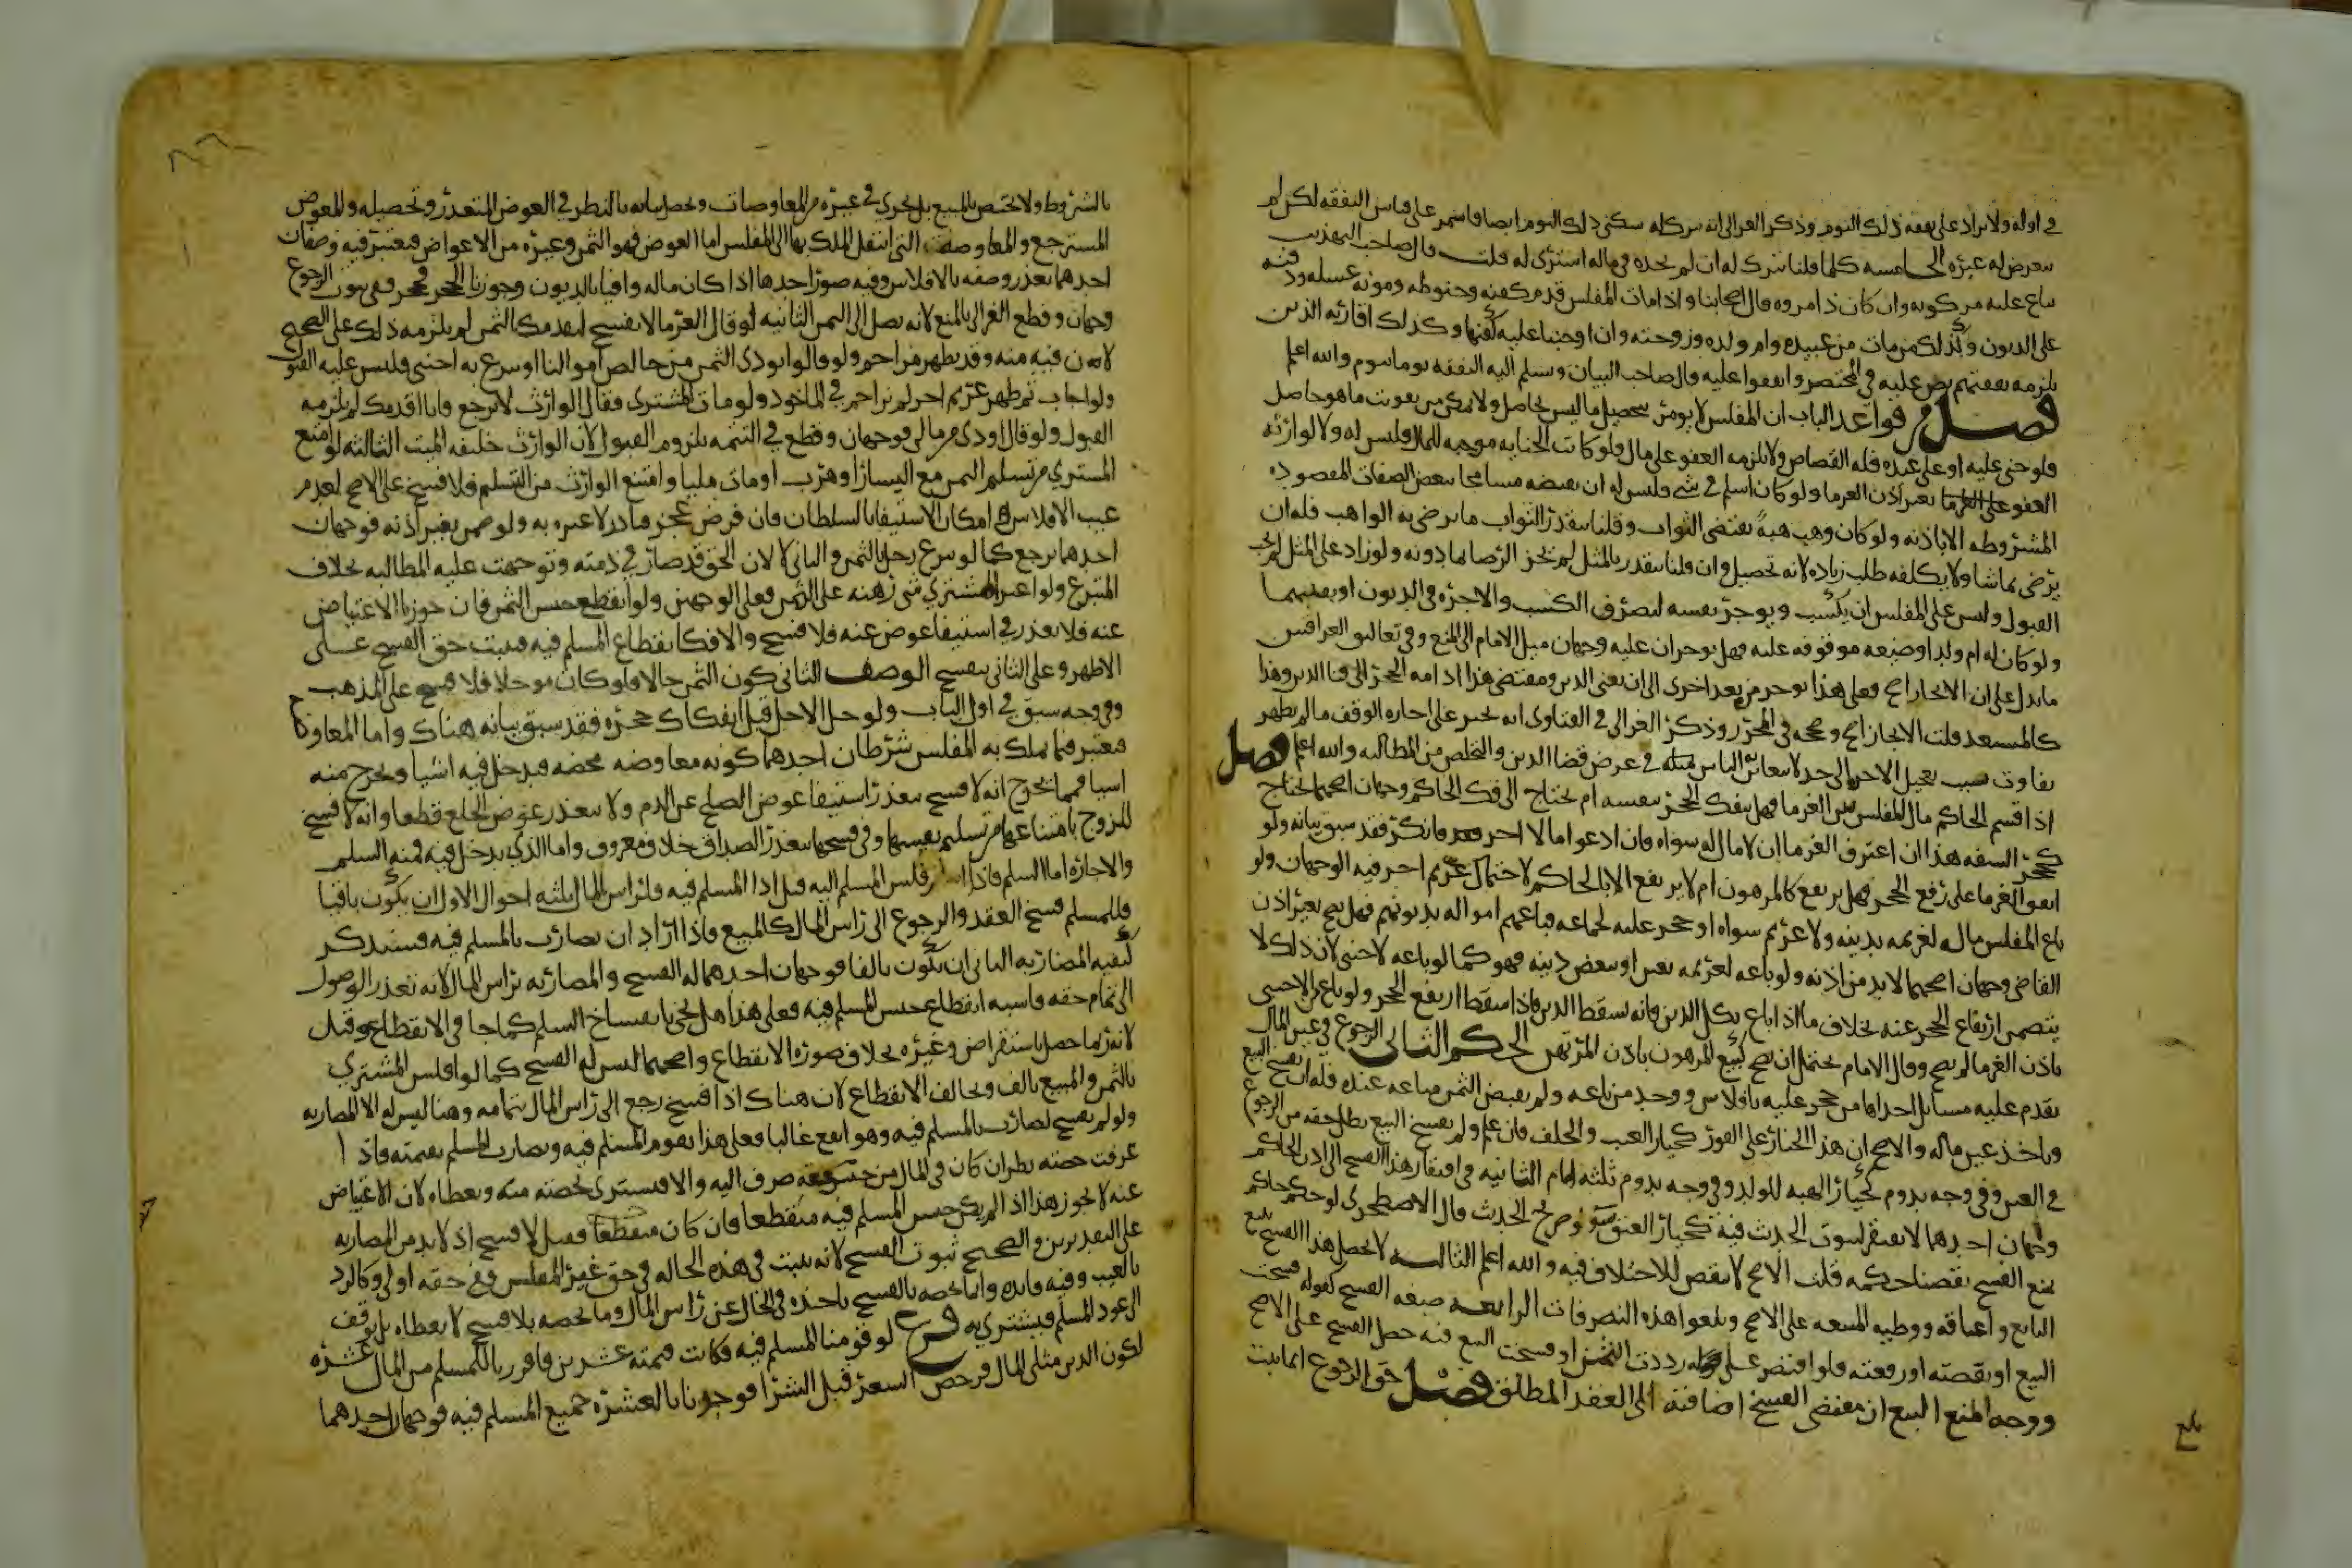 في اوله ولا يزاد على نفقة ذلك اليوم وذكر الغزالي انه يترك له سكنى ذلك اليوم ايضا فاستمر على قياس النفقة لكن لم
يتعرض له غيره الخامسة كلما قلنا يترك له ان لم نجده في ماله اشتري له قلت قال صاحب التهذيب
يباع عليه مركوبه وان كان ذا مروه قال اصحابنا واذا مات المفلس قدم كفنه وحنوطه ومونة غسله ودفنه
على الديون وكذلك من مات من عبيده وام ولده وزوجته وان اوجبنا عليه كفنها وكذلك اقاربه الذين
يلزمه نفقتهم نص عليه في المختصر واتفقوا عليه قال صاحب البيان وتسلم اليه النفقة يوما بيوم والله اعلم
فصل من قواعد الباب ان المفلس لا يومر بتحصيل ما ليس بحاصل ولا يمكن من تفويت ما هو حاصل
فلو جني عليه او على عبده فله القصاص ولا يلزمه العفو على مال ولو كانت الجناية موجبة للمال فليس له ولا لوارثه
العفو بغير اذن الغرما ولو كان اسلم في شي فليس له ان يقبضه مسامحا ببعض الصفات المقصودة
المشروطة الا باذنه ولو كان وهب هبة تقتضي الثواب وقلنا يتقدر الثواب بما يرضى به الواهب فله ان
يرضى بما شا ولا يكلفه طلب زيادة لانه تحصيل وان قلنا يتقدر بالمثل لم يجز الرضا بما دونه ولو زاد على المثل لم يجب
القبول وليس على المفلس ان يكتسب ويوجر نفسه ليصرف الكسب والاجرة في الديون او بقيتها
ولو كان له ام ولد او ضيعة موقوفة عليه فهل يوجران عليه وجهان ميل الامام الى المنع وفي تعاليق العراقيين
ما يدل على ان الايجار اصح فعلى هذا يوجر مرة بعد اخرى الى ان يفنى الدين ومقتضى هذا ادامة الحجر الى فنا الدين وهذا
كالمستبعد قلت الايجار اصح وصححه في المحرر وذكر الغزالي في الفتاوى انه يجبر على اجارة الوقف ما لم يظهر
تفاوت بسبب تعجيل الاجرة الى حد لا يتغابن به الناس في غرض قضا الدين والتخلص من المطالبة والله اعلم فصل
اذا قسم الحاكم مال المفلس بين الغرما فهل ينفك الحجر بنفسه ام يحتاج الى فك الحاكم وجهان اصحهما يحتاج
كحجر السفه هذا ان اعترف الغرما ان لا مال له سواه فان ادعوا مالا اخر فانكر فقد سبق بيانه ولو
اتفق الغرما على رفع الحجر فهل يرتفع كالمرهون ام لا يرتفع الا بالحاكم لاحتمال غريم اخر فيه الوجهان ولو
باع المفلس ماله لغريمه بدينه ولا غريم سواه او حجر عليه لجماعة فباعهم امواله بديونهم فهل يصح بغير اذن
القاضي وجهان اصحهما لا بد من اذنه ولو باعه لغريمه بعين او ببعض دينه فهو كما لو باعه لاجنبي لان ذلك لا
يتضمن ارتفاع الحجر عنه بخلاف ما اذا باع بكل الدين فانه يسقط الدين فاذا سقط ارتفع الحجر ولو باع من الاجنبي
باذن الغرما لم يصح وقال الامام يحتمل ان يصح كبيع المرهون باذن المرتهن الحكم الثاني الرجوع في عين المال
يقدم عليه مسايل احداها من حجر عليه بافلاس ووجد من باعه ولم يقبض الثمن متاعه عنده فله ان يفسخ البيع
وياخذ عين ماله والاصح ان هذا الخيار على الفور كخيار العيب والخلف فان علم ولم يفسخ البيع بطل حقه من الرجوع
في العين وفي وجه يدوم كخيار الهبة للولد وفي وجه يدوم ثلثة ايام الثانية في افتقار هذا الفسخ الى اذن الحاكم
وجهان احدهما لا يفتقر لثبوت الحديث فيه كخيار العتق ولوضوح الحديث قال الاصطخري لو حكم حاكم
بمنع الفسخ نقضنا حكمه قلت الاصح لا ينقض للاختلاف فيه والله اعلم الثالثة لا يحصل هذا الفسخ ببيع
البايع واعتاقه ووطيه المبيعة على الاصح وتلغوا هذه التصرفات الرابعة صيغة الفسخ كقوله فسخت
البيع او نقضته او رفعته فلو اقتصر على رددت الثمن او فسخت البيع فيه حصل الفسخ على الاصح
ووجه المنع ان مقتضى الفسخ اضافته الى العقد المطلق فصل حق الرجوع انما يثبت
بلغ
بالشروط ولا يختص بالمبيع بل يجري في غيره من المعاوضات وتحصل بيانه بالنظر في العوض المتعذر وتحصيله والمعوض
المسترجع والمعاوضة التي انتقل الملك بها الى المفلس اما العوض فهو الثمن وغيره من الاعواض فيعتبر فيه وصفان
احدهما تعذر وصفه بالافلاس وفيه صور احدها اذا كان ماله وافيا بالديون وجوزنا الحجر فحجر ففي ثبوت الرجوع
وجهان وقطع الغزالي بالمنع لانه يصل الى الثمن الثانية لو قال الغرما لا تفسخ لنقدمك بالثمن لم يلزمه ذلك على الصحيح
لان فيه منه وقد يظهر مزاحم ولو قالوا نودي الثمن من خالص اموالنا او تبرع به اجنبي فليس عليه القبول
ولو اجاب ثم ظهر غريم اخر لم يزاحمه في الماخوذ ولو مات المشتري فقال الوارث لا ترجع فانا اقدمك لم يلزمه
القبول ولو قال اودي من مالي فوجهان وقطع في التتمة بلزوم القبول لان الوارث خليفة الميت الثالثة لو امتنع
المشتري من تسليم الثمن مع اليسار او هرب او مات مليا وامتنع الوارث من التسليم فلا فسخ على الاصح لعدم
عيب الافلاس وامكان الاستيفا بالسلطان فان فرض عجز فنادر لا عبرة به ولو ضمن بغير اذنه فوجهان
احدهما يرجع كما لو تبرع رجل بالثمن والثاني لا لان الحق قد صار في ذمته وتوجهت عليه المطالبة بخلاف
المتبرع ولو اعير المشتري شي رهنه على الثمن فعلى الوجهين ولو انقطع جنس الثمن فان جوزنا الاعتياض
عنه فلا تعذر في استيفا عوض عنه فلا فسخ والا فكانقطاع المسلم فيه فيثبت حق الفسخ على
الاظهر وعلى الثاني ينفسخ الوصف الثاني كون الثمن حالا فلو كان موجلا فلا فسخ على المذهب
وفي وجه سبق في اول الباب ولو حل الاجل قبل انفكاك حجره فقد سبق بيانه هناك واما المعاوضة
فيعتبر فيما يملك به المفلس شرطان احدهما كونه معاوضة محضة فيدخل فيه اشيا ويخرج منه
اشيا فمما يخرج انه لا فسخ بتعذر استيفا عوض الصلح عن الدم ولا بتعذر عوض الخلع قطعا وانه لا فسخ
للزوج بامتناعها من تسليم نفسها وفي فسخها بتعذر الصداق خلاف معروف واما الذي يدخل فيه فمنه السلم
والاجارة اما السلم فاذا فلس المسلم اليه قبل ادا المسلم فيه فلراس المال ثلثة احوال الاول ان يكون باقيا
فللمسلم فسخ العقد والرجوع الى راس المال كالمبيع فاذا اراد ان يضارب بالمسلم فيه فسنذكر
كيفية المضاربة الثاني ان يكون تالفا فوجهان احدهما له الفسخ والمضاربة براس المال لانه تعذر الوصول
الى تمام حقه فاشبه انقطاع جنس المسلم فيه فعلى هذا هل يجي بانفساخ السلم كما جا في الانقطاع وقيل
لا لانه ربما حصل باستقراض وغيره بخلاف صورة الانقطاع واصحهما ليس له الفسخ كما لو افلس المشتري
بالثمن والمبيع تالف ويخالف الانقطاع لان هناك اذا فسخ رجع الى راس المال بتمامه وهنا ليس له الا المضاربة
ولو لم يفسخ لضارب بالمسلم فيه وهو انفع غالبا فعلى هذا يقوم المسلم فيه ويضارب المسلم بقيمته فاذا
عرفت حصته نظر ان كان في المال من جنس حقه صرف اليه والا فيشترى بحصته منه ويعطاه لان الاعتياض
عنه لا يجوز هذا اذا لم يكن جنس المسلم فيه منقطعا فان كان منقطعا فقيل لا فسخ اذ لا بد من المضاربة
على التقديرين والصحيح ثبوت الفسخ لانه يثبت في هذه الحالة في حق غير المفلس ففي حقه اولى وكالرد
بالعيب وفيه فايدة وانما يخصه بالفسخ ياخذه في الحال عن راس المال وما يخصه بلا فسخ لا يعطاه بل يوقف
الى عود المسلم فيشترى به فرع لو قومنا المسلم فيه فكانت قيمته عشرين فافرزنا للمسلم من المال عشرة
لكون الدين مثلي المال فرخص السعر قبل الشرا فوجدنا بالعشرة جميع المسلم فيه فوجهان احدهما